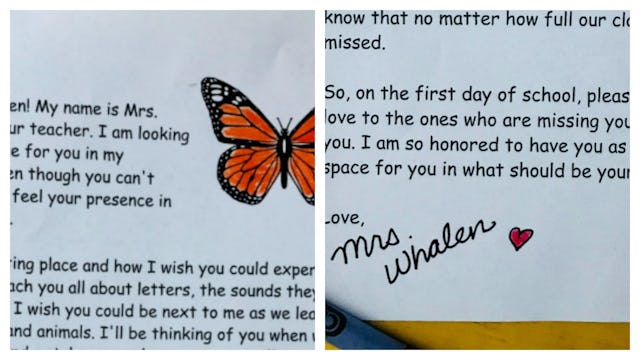 en! My name is Mrs.
ur teacher. I am looking
e for you in my
en though you can't
feel your presence in
.
ring place and how I wish you could exper
ach you all about letters, the sounds they
I wish you could be next to me as we lea
and animals. I'll be thinking of you when
know that no matter how full our cl
missed.
So, on the first day of school, pleas
love to the ones who are missing you
you. I am so honored to have you as
space for you in what should be your
Love,
Mrs.
Whalen